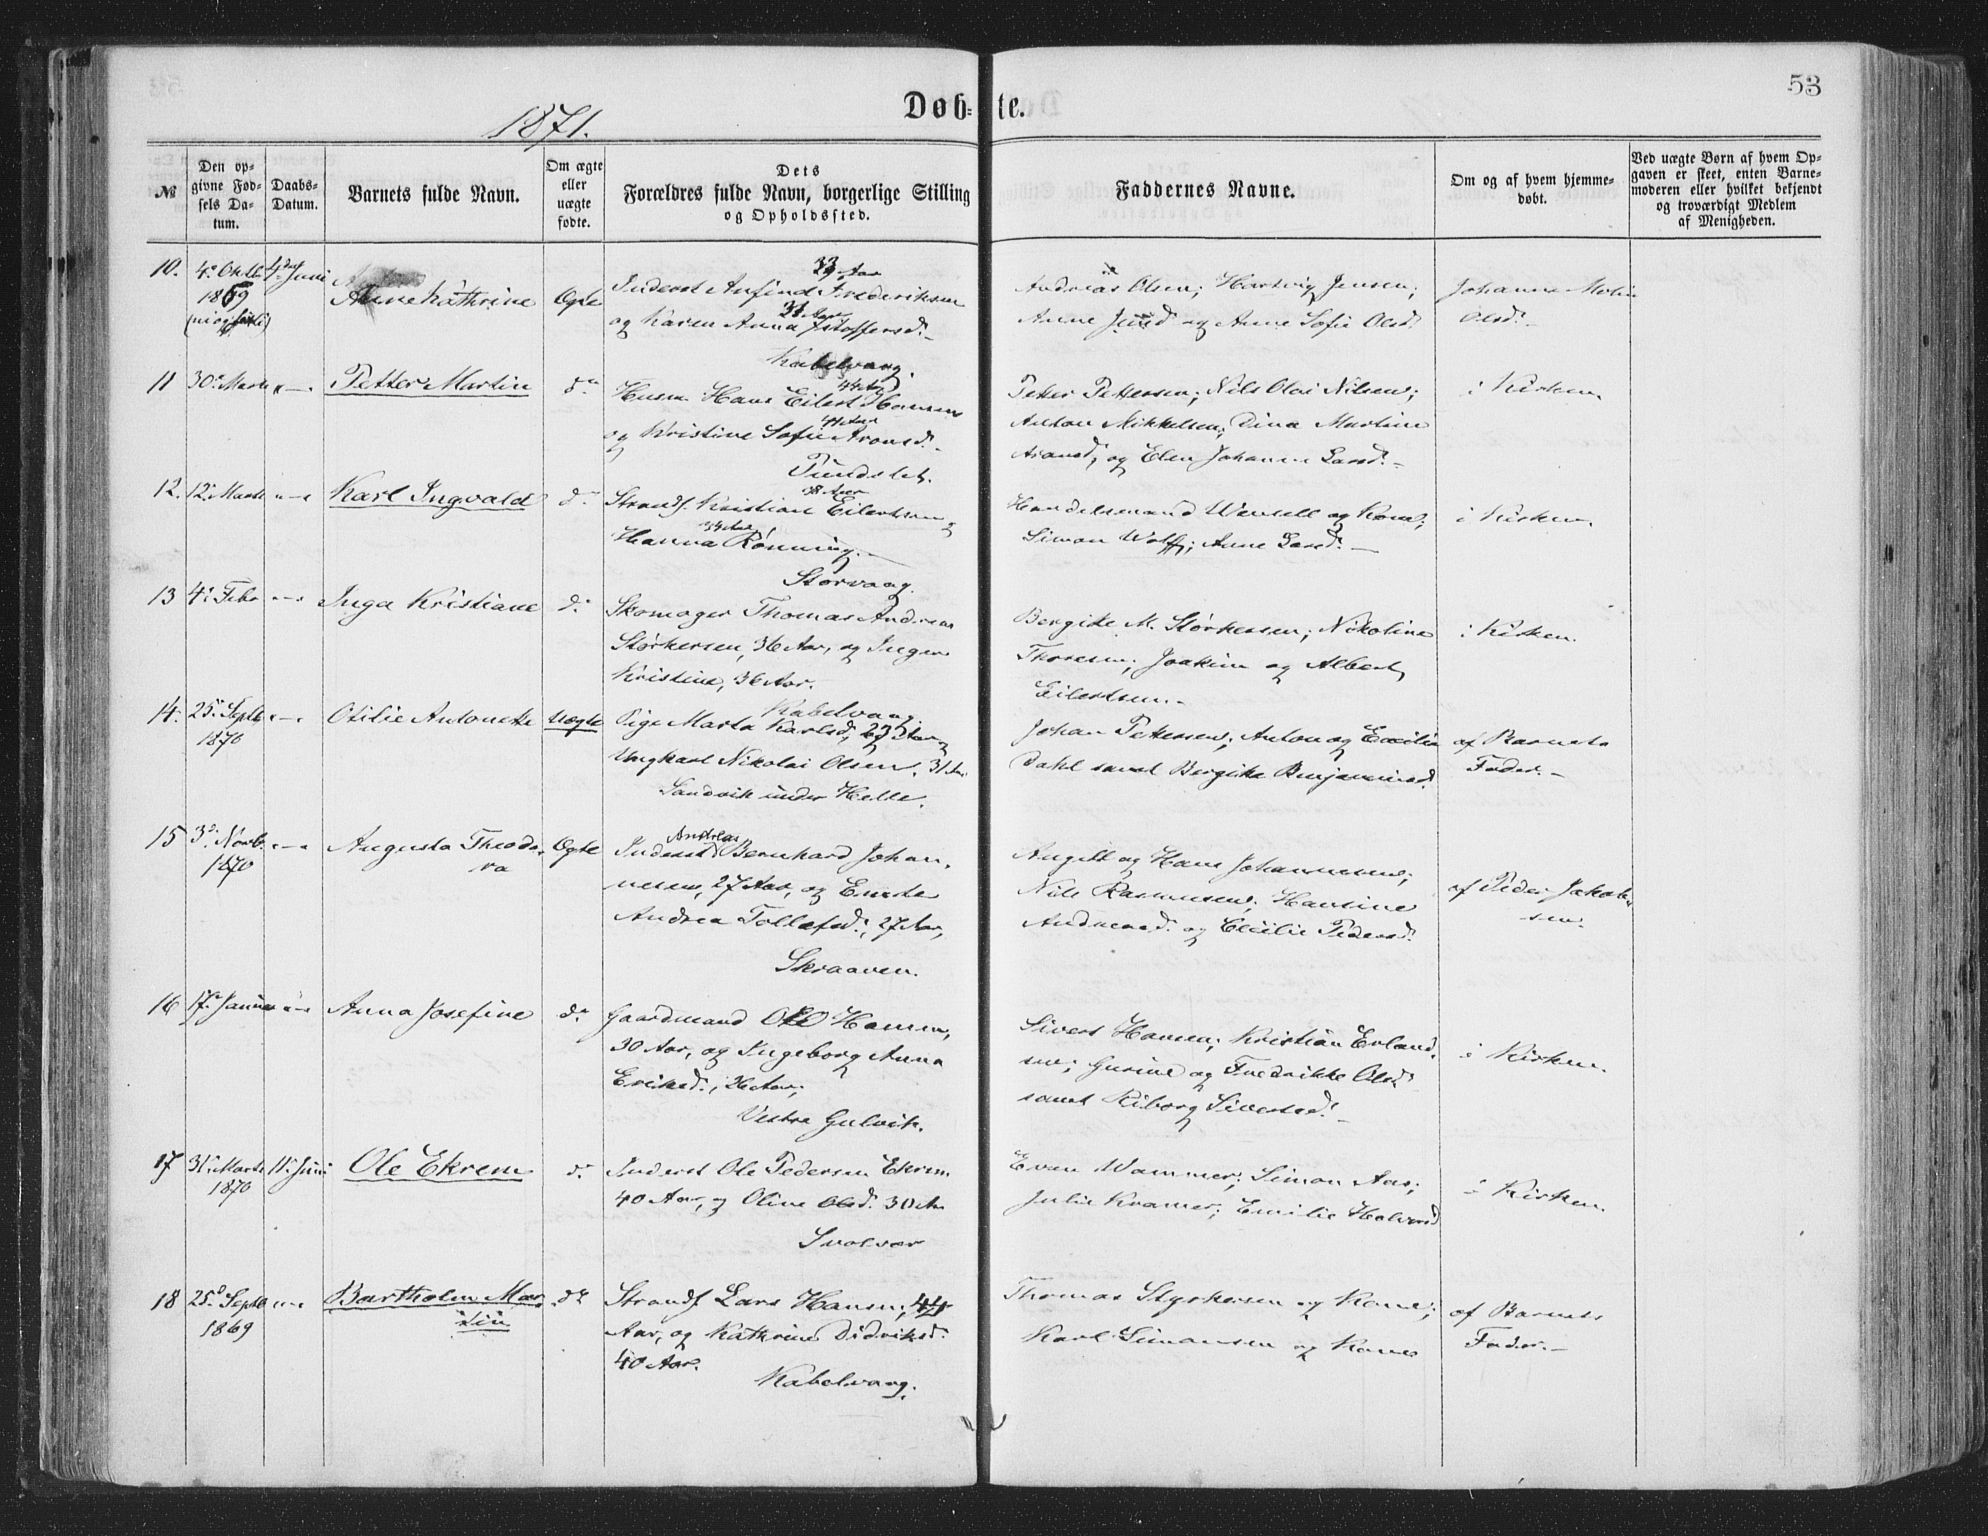 53
1871.
Døb-te.
№
Den opgivne Fødsels Datum.
Daabs-Datum.
Barnets fulde Navn.
Om ægte eller uægte fødte.
Dets Forældres fulde Navn, borgerlige Stilling og Opholdssted.
Faddernes Navne.
Om og af hvem hjemmedøbt.
Ved uægte Børn af hvem Opgaven er skeet, enten Barnemoderen eller hvilket bekjendt og troværdigt Medlem af Menigheden.
10. 4. Oktb 1869 4de Juni
Anne Kathrine
Ogte
33 Aar
Inderst Anfind Frederiksen
31 Aar
og Karen Anna Istoffersd.
Kabelvaag.
Andreas Olsen; Hartvig Jensen;
Anne Jensd og Anne Sofie Olsd.
Johanna Malin
Olsd.
11 30. Marts "—"
Petter Martin
do
44 Aar
Husm Hans Eilert Hansen
44 Aar
og Kristine Sofie Aronsd.
Tundslet.
Peter Pettersen; Nils Olai Nilsen;
Anton Mikkelsen; Dina Martine
Aronsd, og Elen Johanna Larsd.
i Kirken
12. 12. Marts "—"
Karl Ingvald
do
38 Aar
Strands. Kristian Eilertsen og
34 Aar
Hanna Rønning.
Storvaag.
Handelsmand Wensell og Kone;
Simon Wolff; Anne Larsd.
i Kirken
13 4. Febr "—"
Inga Kristiane
do
Skomager Thomas Andreas
Størkersen, 36 Aar, og Inger
Kristine, 36 Aar.
Kabelvaag.
Bergitte M. Størkersen; Nikoline
Thoresen; Joakim og Albert
Eilertsen.
i Kirken.
14. 25. Septb 1870 "—"
Otilie Antonette
Uægte
Pige Marta Karlsd, 23 Aar og
Ungkarl Nikolai Olsen, 31 Aar
Sandvik under Helle.
Johan Petersen; Anton og Cecilia
Dahl samt Bergitte Benjaminsd.
af Barnets
Fader.
15 3. Novb. 1870 "—"
Augusta Theodo-
ra
Ogte
Andreas
Inderst Bernhard Johan-
nesen, 27 Aar, og Enerte
Andrea Tollefsd., 27 Aar,
Skraaven.
Angell og Hans Johannesen;
Nils Rasmusen; Hansine
Andreasd. og Cecilie Pedersd.
af Peder Jakob-
sen.
16 17. Januar "—"
Anna Josefine
do
Gaardmand Ole Hansen,
30 Aar, og Ingeborg Anna
Eriksd., 26 Aar;
Vestre Gulvik.
Sivert Hansen; Kristian Erland-
sen; Gurine og Fredrikke Olsd.
samt Riborg Sivertsd.
i Kirken.
17 31. Marts 1870 11. Juni
Ole Ekrem
do
Inderst Ole Pedersen Ekrem
40 Aar, og Oline Olsd. 30 Aar
Svolvær
Even Wammer; Simon Aas;
Julie Kramer; Emilie Halvorsd
i Kirken.
18 25. Septb 1869 "—"
Bartholm Mar-
tin
do
Strands Lars Hansen, 44
Aar, og Kathrine Didriksd.
40 Aar.
Kabelvaag.
Thomas Styrkersen og Kone;
Karl Simonsen og Kone
af Barnets
Fader.